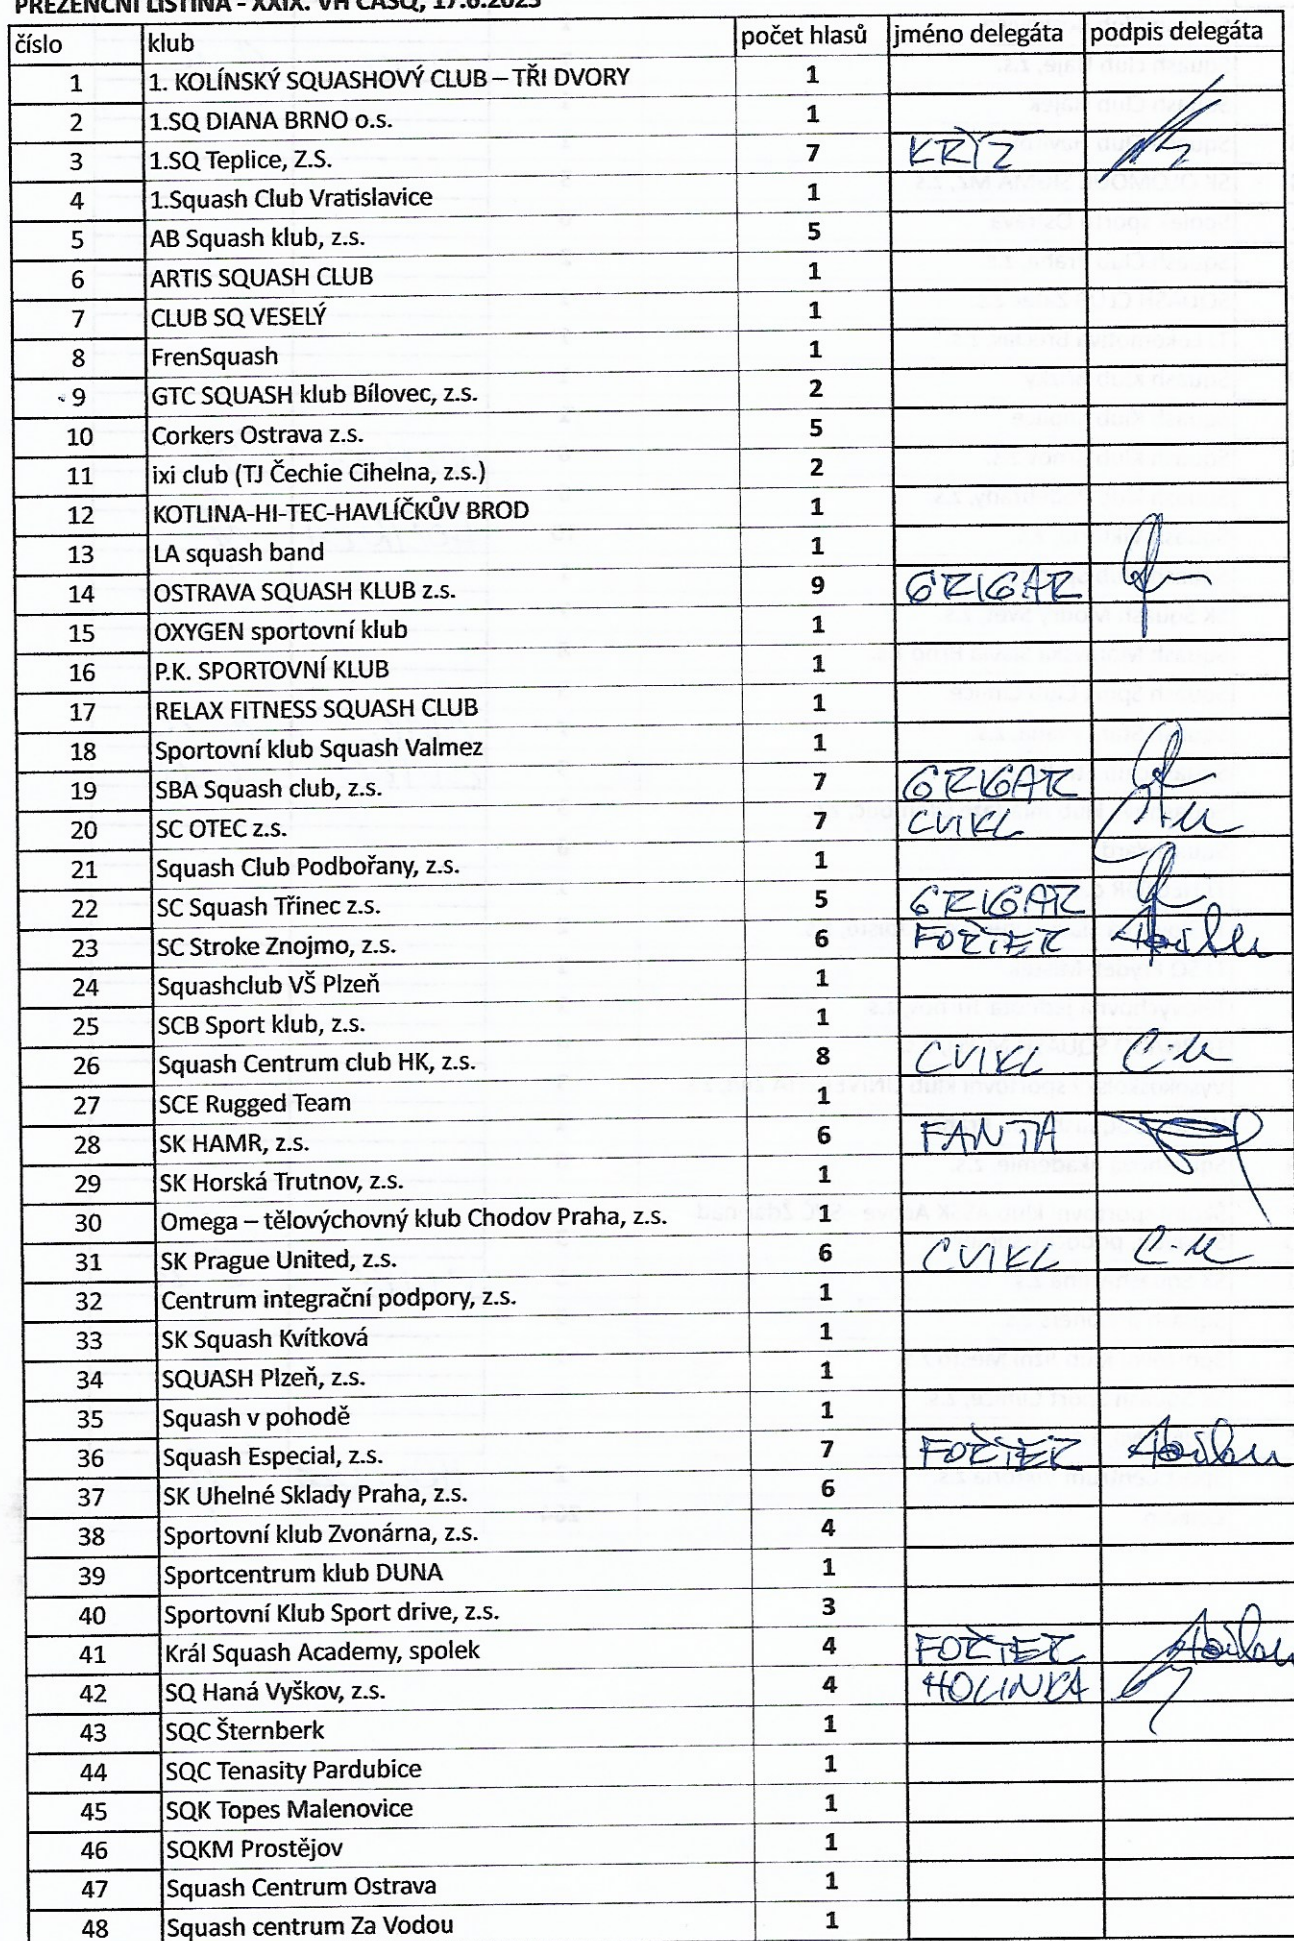 PREZENČNÍ LISTINA - XXIX. VH ČASQ, 17.6.2023
číslo klub počet hlasů jméno delegáta podpis delegáta
1 1. KOLÍNSKÝ SQUASHOVÝ CLUB – TŘI DVORY 1
2 1.SQ DIANA BRNO o.s. 1
3 1.SQ Teplice, Z.S. 7 KŘÍŽ
4 1.Squash Club Vratislavice 1
5 AB Squash klub, z.s. 5
6 ARTIS SQUASH CLUB 1
7 CLUB SQ VESELÝ 1
8 FrenSquash 1
9 GTC SQUASH klub Bílovec, z.s. 2
10 Corkers Ostrava z.s. 5
11 ixi club (TJ Čechie Cihelna, z.s.) 2
12 KOTLINA-HI-TEC-HAVLÍČKŮV BROD 1
13 LA squash band 1
14 OSTRAVA SQUASH KLUB z.s. 9 GRIGAR
15 OXYGEN sportovní klub 1
16 P.K. SPORTOVNÍ KLUB 1
17 RELAX FITNESS SQUASH CLUB 1
18 Sportovní klub Squash Valmez 1
19 SBA Squash club, z.s. 7 GRIGAR
20 SC OTEC z.s. 7 CVIKL
21 Squash Club Podbořany, z.s. 1
22 SC Squash Třinec z.s. 5 GRIGAR
23 SC Stroke Znojmo, z.s. 6 FOŘTER
24 Squashclub VŠ Plzeň 1
25 SCB Sport klub, z.s. 1
26 Squash Centrum club HK, z.s. 8 CVIKL
27 SCE Rugged Team 1
28 SK HAMR, z.s. 6 FANTA
29 SK Horská Trutnov, z.s. 1
30 Omega – tělovýchovný klub Chodov Praha, z.s. 1
31 SK Prague United, z.s. 6 CVIKL
32 Centrum integrační podpory, z.s. 1
33 SK Squash Kvítková 1
34 SQUASH Plzeň, z.s. 1
35 Squash v pohodě 1
36 Squash Especial, z.s. 7 FOŘTER
37 SK Uhelné Sklady Praha, z.s. 6
38 Sportovní klub Zvonárna, z.s. 4
39 Sportcentrum klub DUNA 1
40 Sportovní Klub Sport drive, z.s. 3
41 Král Squash Academy, spolek 4 FOŘTER
42 SQ Haná Vyškov, z.s. 4 HOLINKA
43 SQC Šternberk 1
44 SQC Tenasity Pardubice 1
45 SQK Topes Malenovice 1
46 SQKM Prostějov 1
47 Squash Centrum Ostrava 1
48 Squash centrum Za Vodou 1